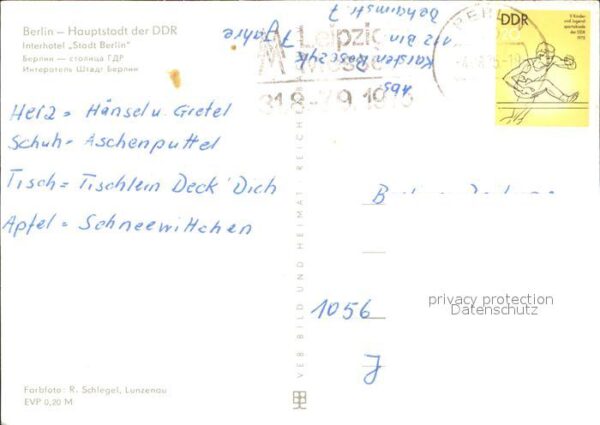 Berlin – Hauptstadt der DDR
Interhotel „Stadt Berlin"
Берлин — столица ГДР
Интеротель Штадт Берлин
Herz = Hänsel u. Gretel
Schuh = Aschenputtel
Tisch = Tischlein Deck Dich
Apfel = Schneewittchen
Farbfoto: R. Schlegel, Lunzenau
EVP 0,20 M
VEB BILD UND HEIMAT REICHENB
Leipzig
Messe
31.8-7.9 1975
Abs
Karsten
Bin 7 Jahre
BERLIN
DDR
20
1056
J
privacy protection
Datenschutz